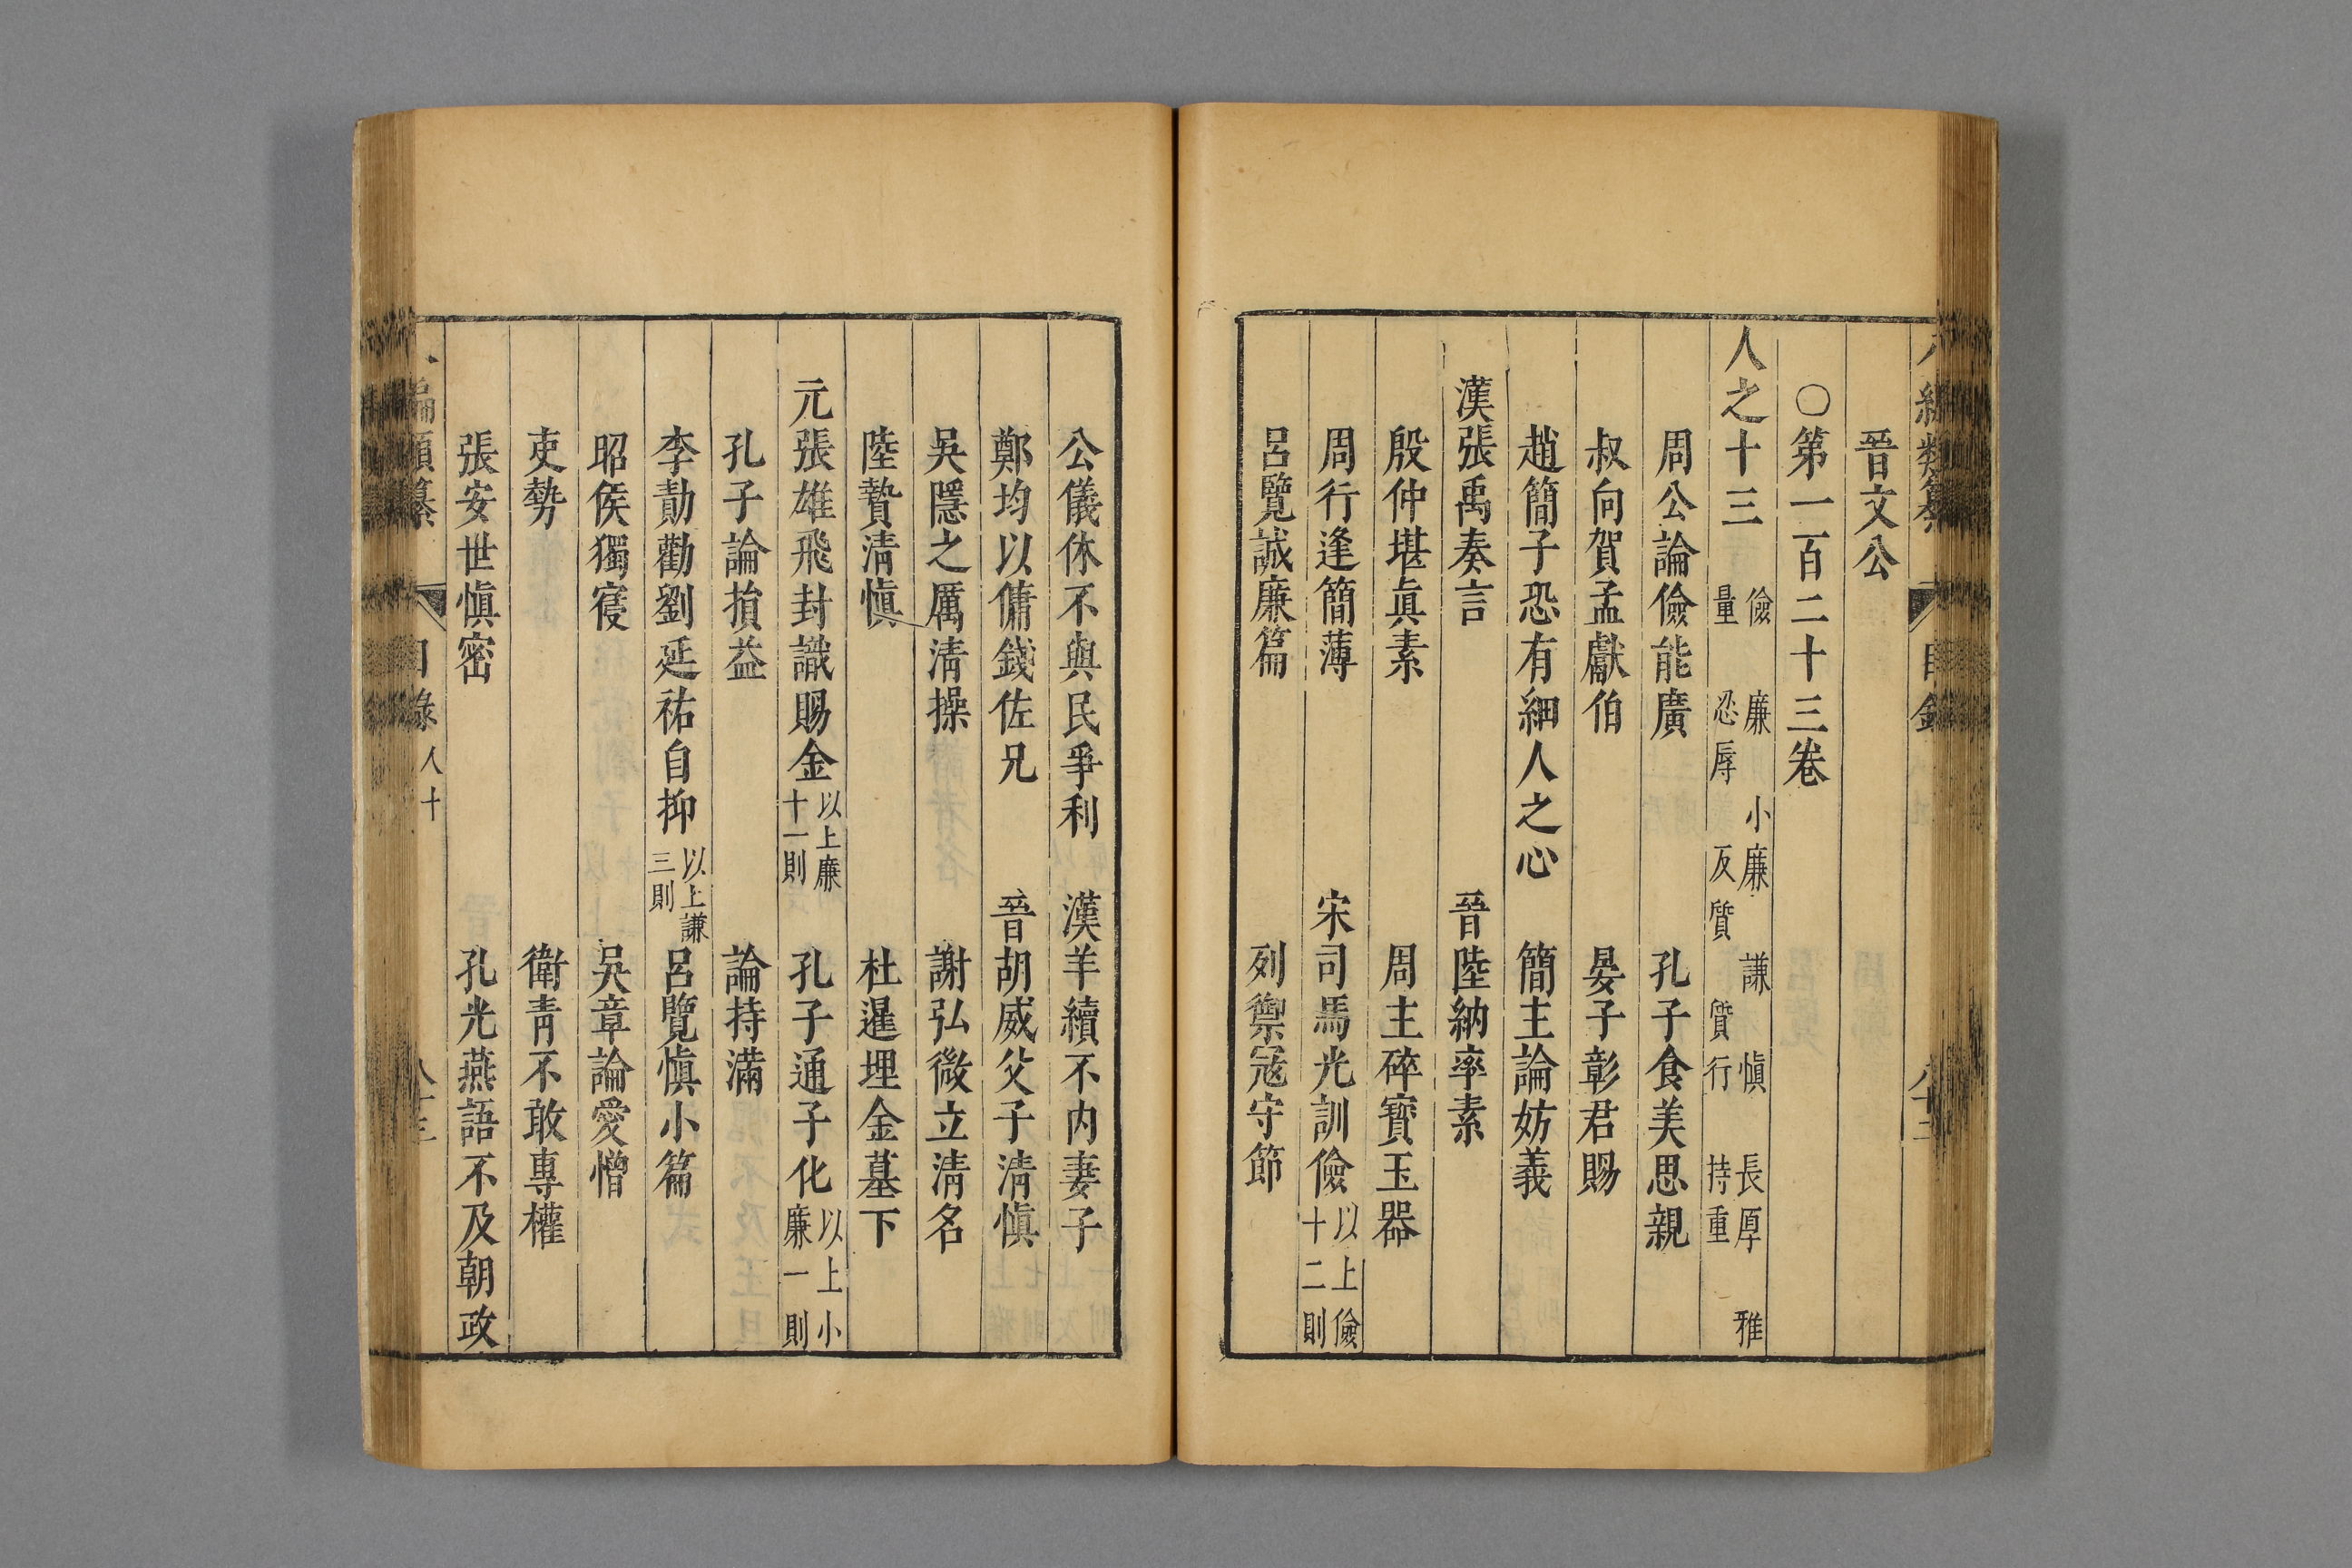 晉文公
○第一百二十三卷
人之十三 儉 廉 小廉 謙 慎 長厚 雅
量 忍辱 反質 質行 持重
周公論儉能廣 孔子食美思親
叔向賀孟獻伯 晏子彰君賜
趙簡子恐有細人之心 簡主論妨義
漢張禹奏言 晉陸納率素
殷仲堪眞素 周主碎寶玉器
周行逢簡薄 宋司馬光訓儉 以上儉
十二則
呂覽誠廉篇 列禦寇守節
公儀休不與民爭利 漢羊續不内妻子
鄭均以傭錢佐兄 晉胡威父子淸愼
吳隱之厲淸操 謝弘微立淸名
陸贄淸愼 杜暹埋金墓下
元張雄飛封識賜金 以上廉
十一則 孔子通子化 以上小
廉一則
孔子論損益 論持滿
李勣勸劉延祐自抑 以上謙
三則 呂覽愼小篇
昭侯獨寑 吳章論愛憎
史勢 衛靑不敢專權
張安世愼密 孔光燕語不及朝政
編類纂 目錄 人十